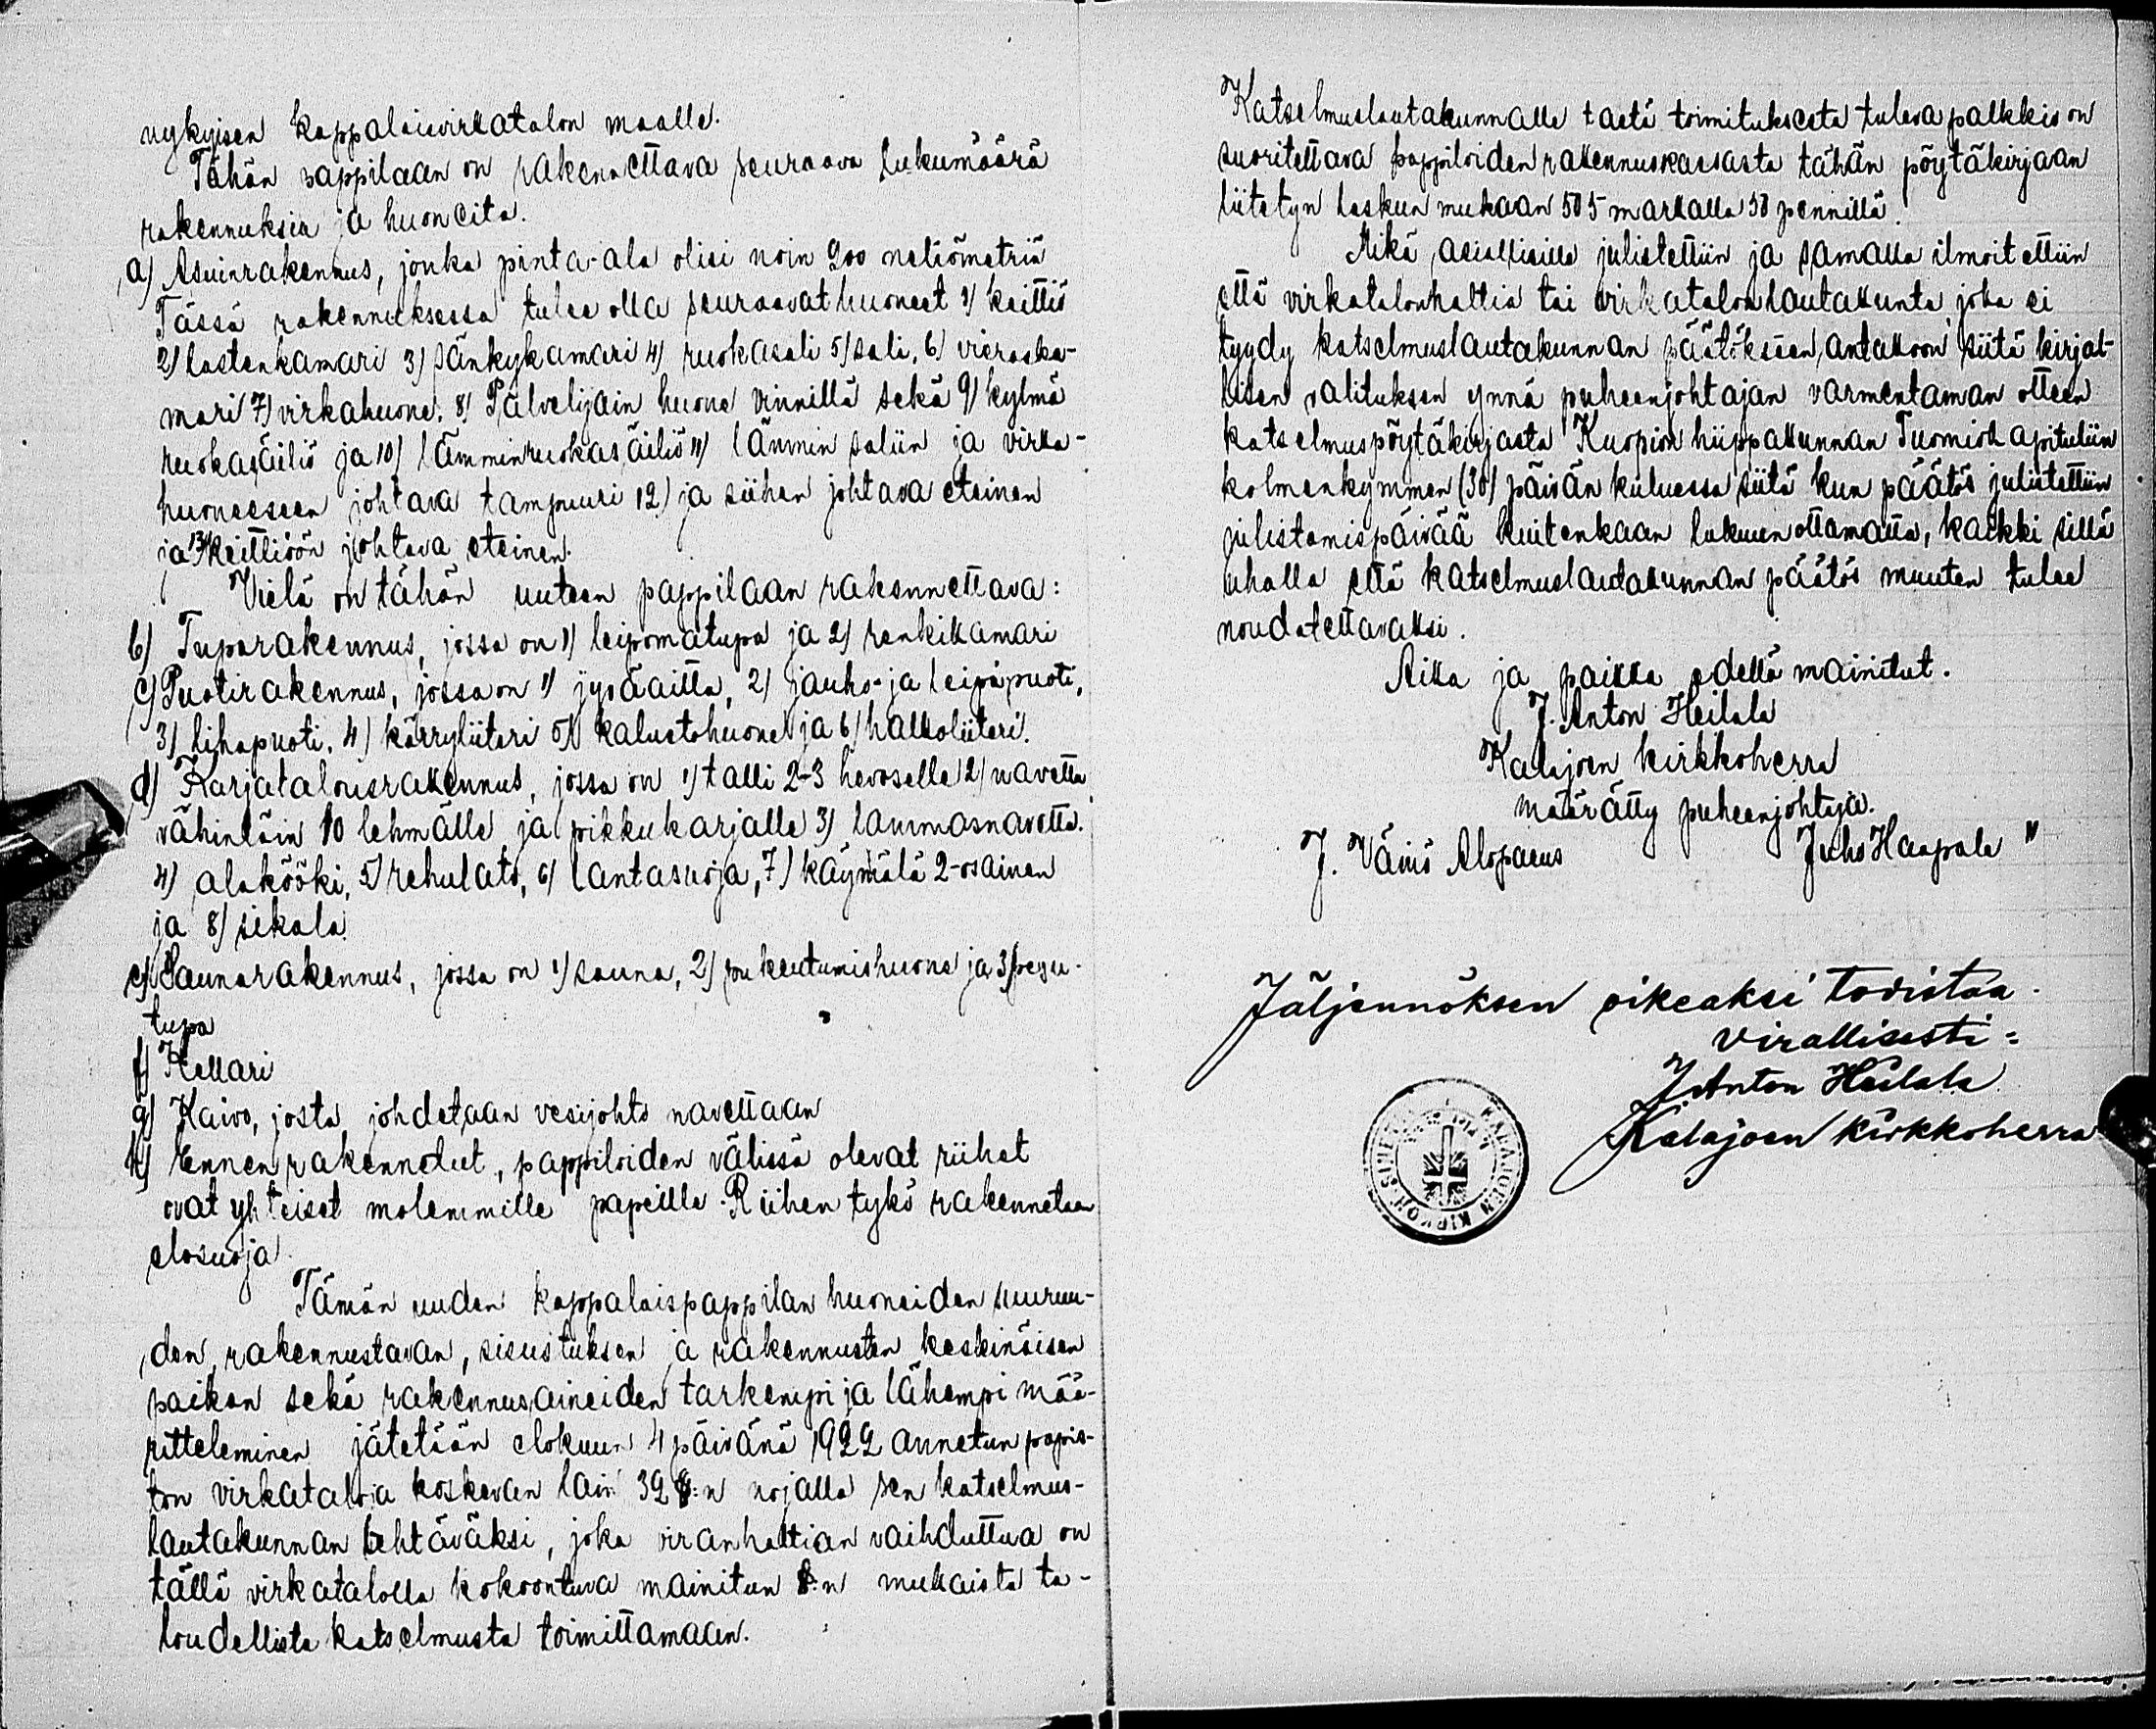 nykyisen kappalaisvirkatalon maalle.
Tähän pappilaan on rakennettava seuraava lukumäärä
rakennuksia ja huoneita.
a) Asuinrakennus, jonka pinta-ala olisi noin 200 neliömetriä
Tässä rakennuksessa tulee olla seuraavat huoneet 1) keittiö
2) lastenkamari 3) sänkykamari 4) ruokasali 5) sali, 6) vieraska-
mari 7) virkahuone. 8) Palvelijain huone vinnillä sekä 9) kylmä
ruokasäiliö ja 10) lämminruokasäiliö 11) lämmin saliin ja virka-
huoneeseen johtava tampuuri 12) ja siihen johtava eteinen
ja 13) keittiöön johtava eteinen.
Vielä on tähän uuteen pappilaan rakennettava:
b) Tuparakennus, jossa on 1) leipomatupa ja 2) renkikamari
c) Puotirakennus, jossa on 1) jyväaitta, 2) jauho- ja leipäpuoti,
3) lihapuoti, 4) kärryliiteri 5) kalustohuone ja 6) halkoliiteri.
d) Karjatalousrakennus, jossa on 1) talli 2-3 hevoselle 2) navetta
vähintäin 10 lehmälle ja pikkukarjalle 3) lammasnavetta.
4) alakööki, 5) rehulato, 6) lantasuoja, 7) käymälä 2-osainen
ja 8) sikala.
e) Saunarakennus, jossa on 1) sauna, 2) pukeutumishuone ja 3) pesu-
tupa
f) Kellari
g) Kaivo, josta johdetaan vesijohto navettaan
h) Ennen rakennetut, pappiloiden välissä olevat riihet
ovat yhteiset molemmille papeille. Riihen tykö rakennetaan
elosuoja.
Tämän uuden kappalaispappilan huoneiden suuruu-
den, rakennustavan, sisustuksen ja rakennusten keskinäisen
paikan sekä rakennusaineiden tarkempi ja lähempi mää-
ritteleminen jätetään elokuun 4 päivänä 1922 annetun papis-
ton virkataloja koskevan lain 39 §:n nojalla sen katselmus-
lautakunnan tehtäväksi, joka viranhaltian vaihduttua on
tällä virkatalolla kokoontuva mainitun §:n mukaista ta-
loudellista katselmusta toimittamaan.
Katselmuslautakunnalle tästä toimituksesta tuleva palkkio on
suoritettava pappiloiden rakennuskassasta tähän pöytäkirjaan
liitetyn laskun mukaan 505 markalla 50 pennillä.
Mikä asiallisille julistettiin ja samalla ilmoitettiin
että virkatalonhaltia tai virkatalonlautakunta, joka ei
tyydy katselmuslautakunnan päätökseen, antakoon siitä kirjal-
lisen valituksen ynnä puheenjohtajan varmentaman otteen
katselmuspöytäkirjasta Kuopion hiippakunnan Tuomiokapituliin
kolmenkymmen (30) päivän kuluessa siitä kun päätös julistettiin
julistamispäivää kuitenkaan lukuunottamatta, kaikki sillä
uhalla että katselmuslautakunnan päätös muuten tulee
noudatettavaksi.
Aika ja paikka edellä mainitut.
J. Anton Heilala
Kalajoen kirkkoherra
määrätty puheenjohtaja.
J. Väinö Alopaeus Juho Haapala "
Jäljennöksen oikeaksi todistaa
virallisesti:
J Anton Heilala
Kalajoen kirkkoherra
KALAJOEN KIRKON SINETTI